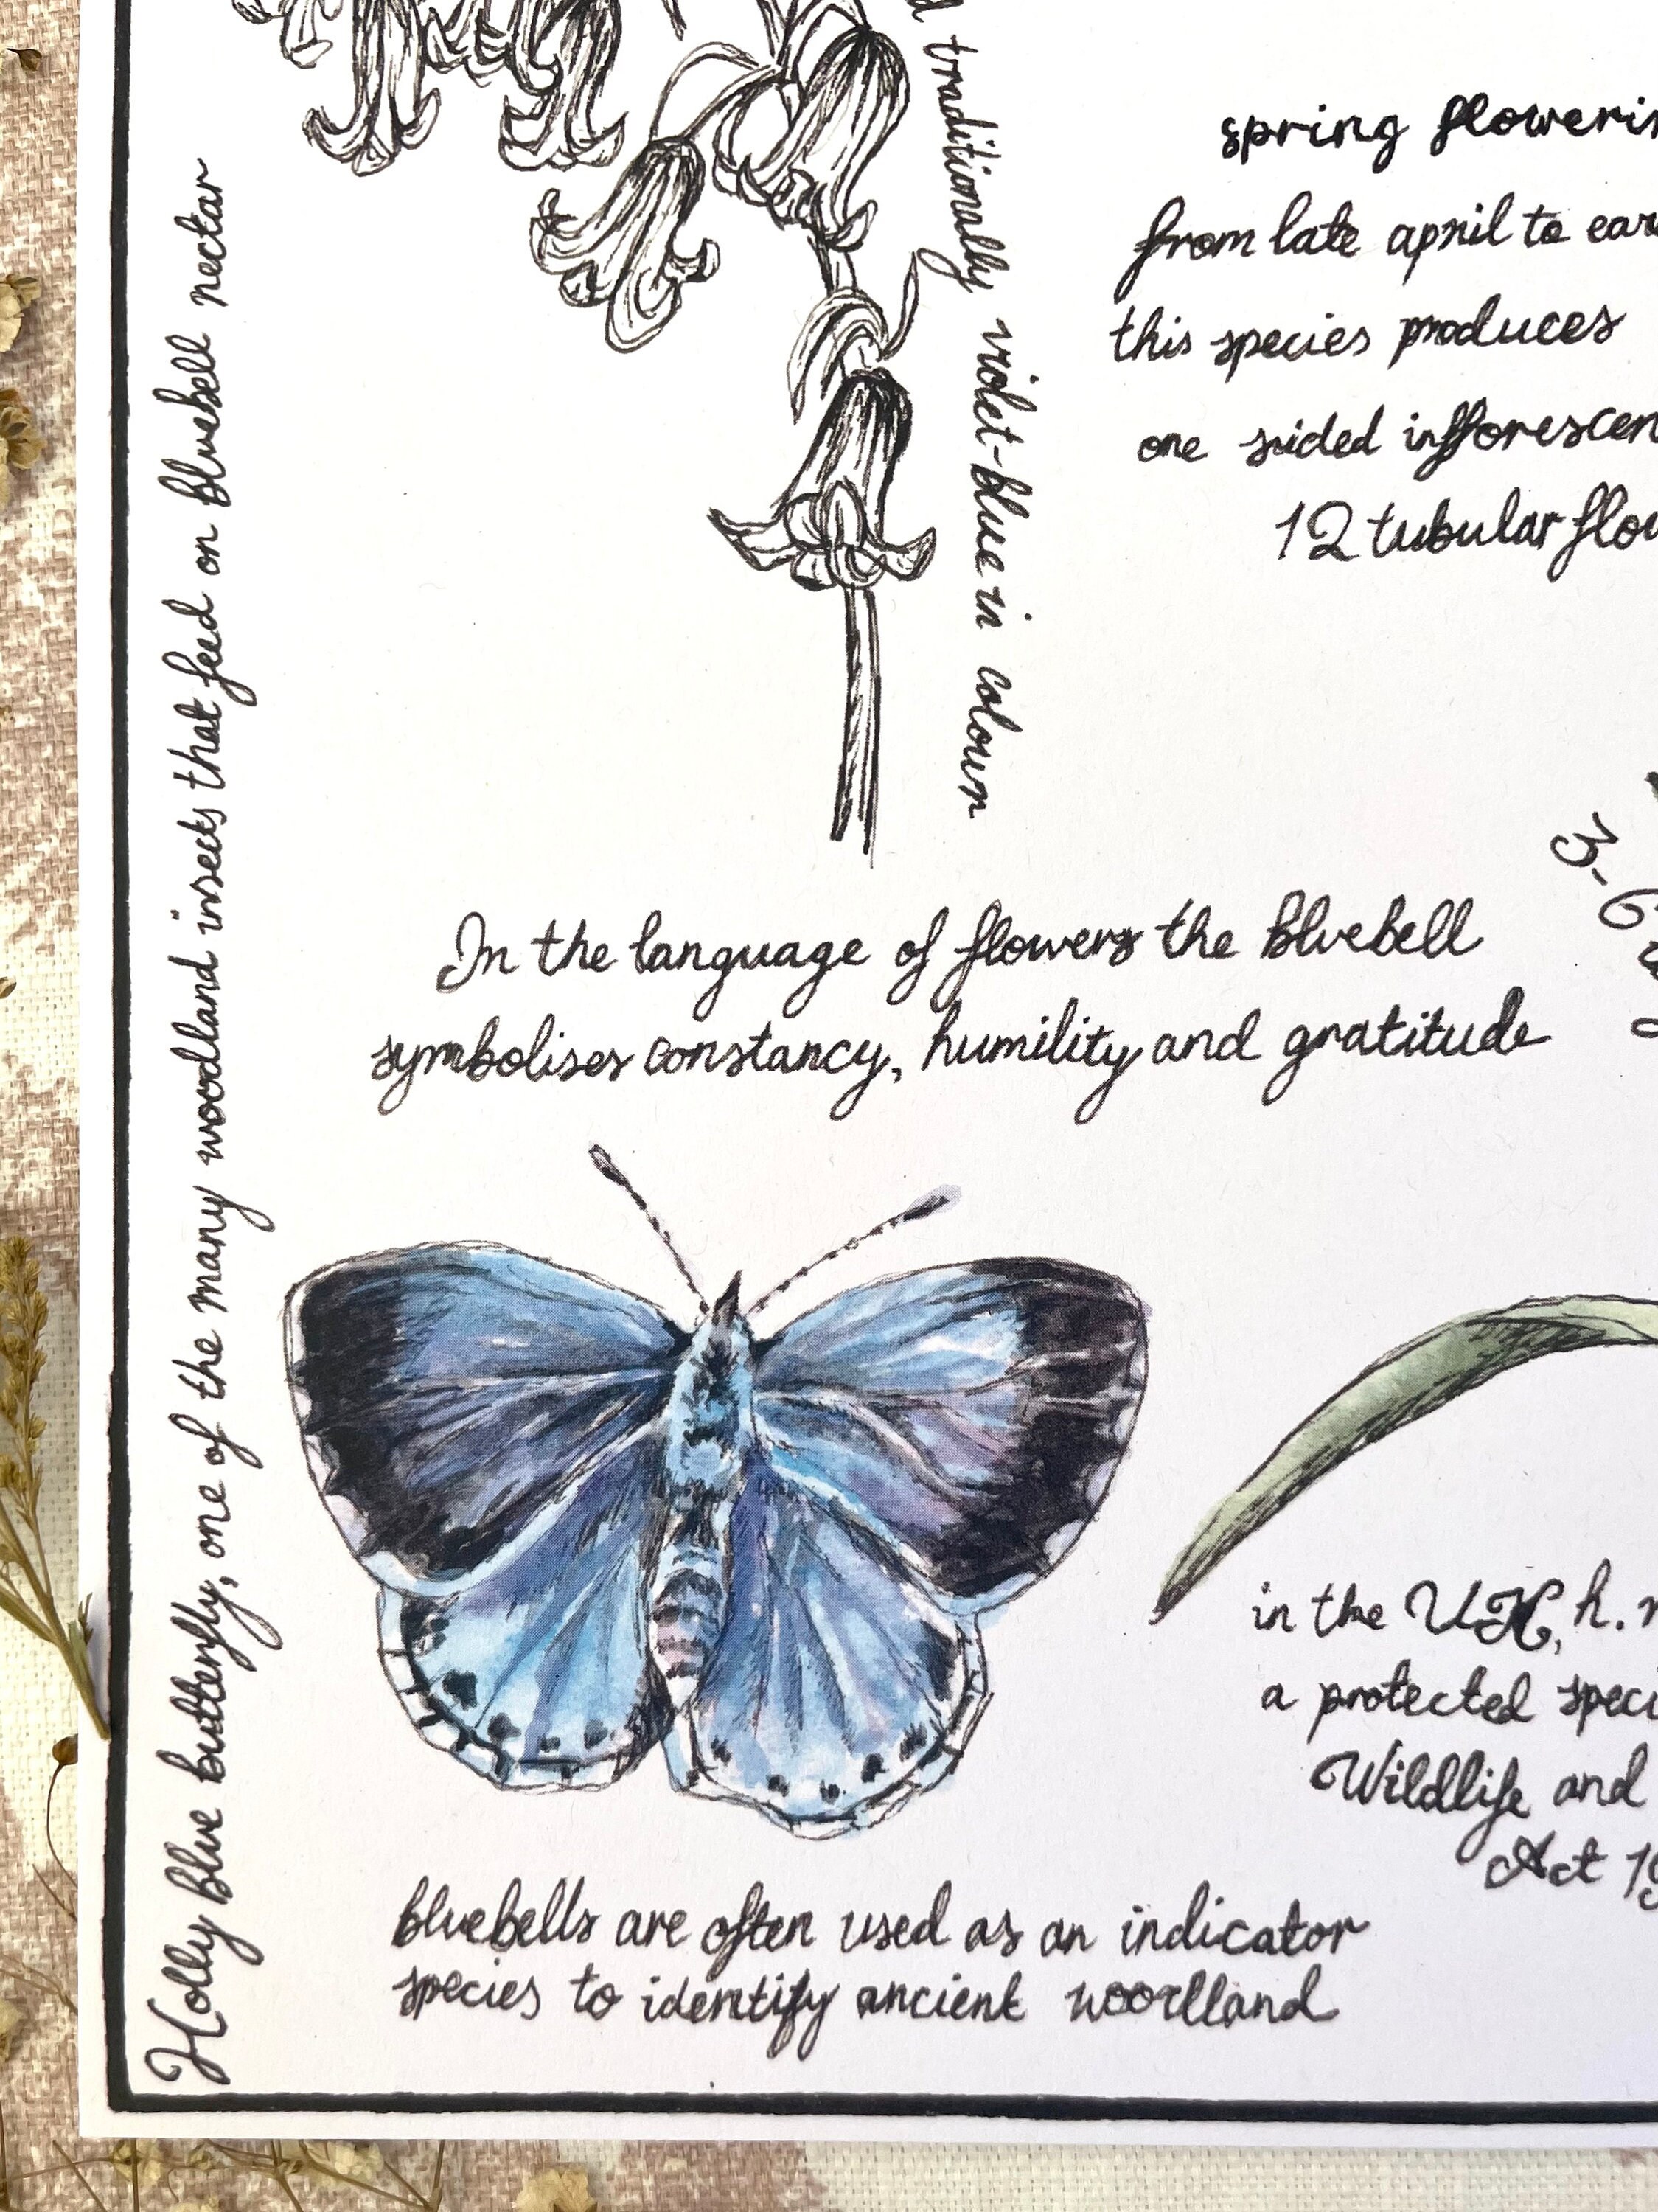 Holly blue butterfly, one of the many woodland insects that feed on bluebell nectar
traditionally violet-blue in colour
spring flowerin
from late april to ear
this species produces
one sided infforescen
12 tubular flow
3-6
In the language of flowers the bluebell
symbolises constancy, humility and gratitude
in the UK, h. n
a protected speci
Wildlife and
Act 19
bluebells are often used as an indicator
species to identify ancient woodland